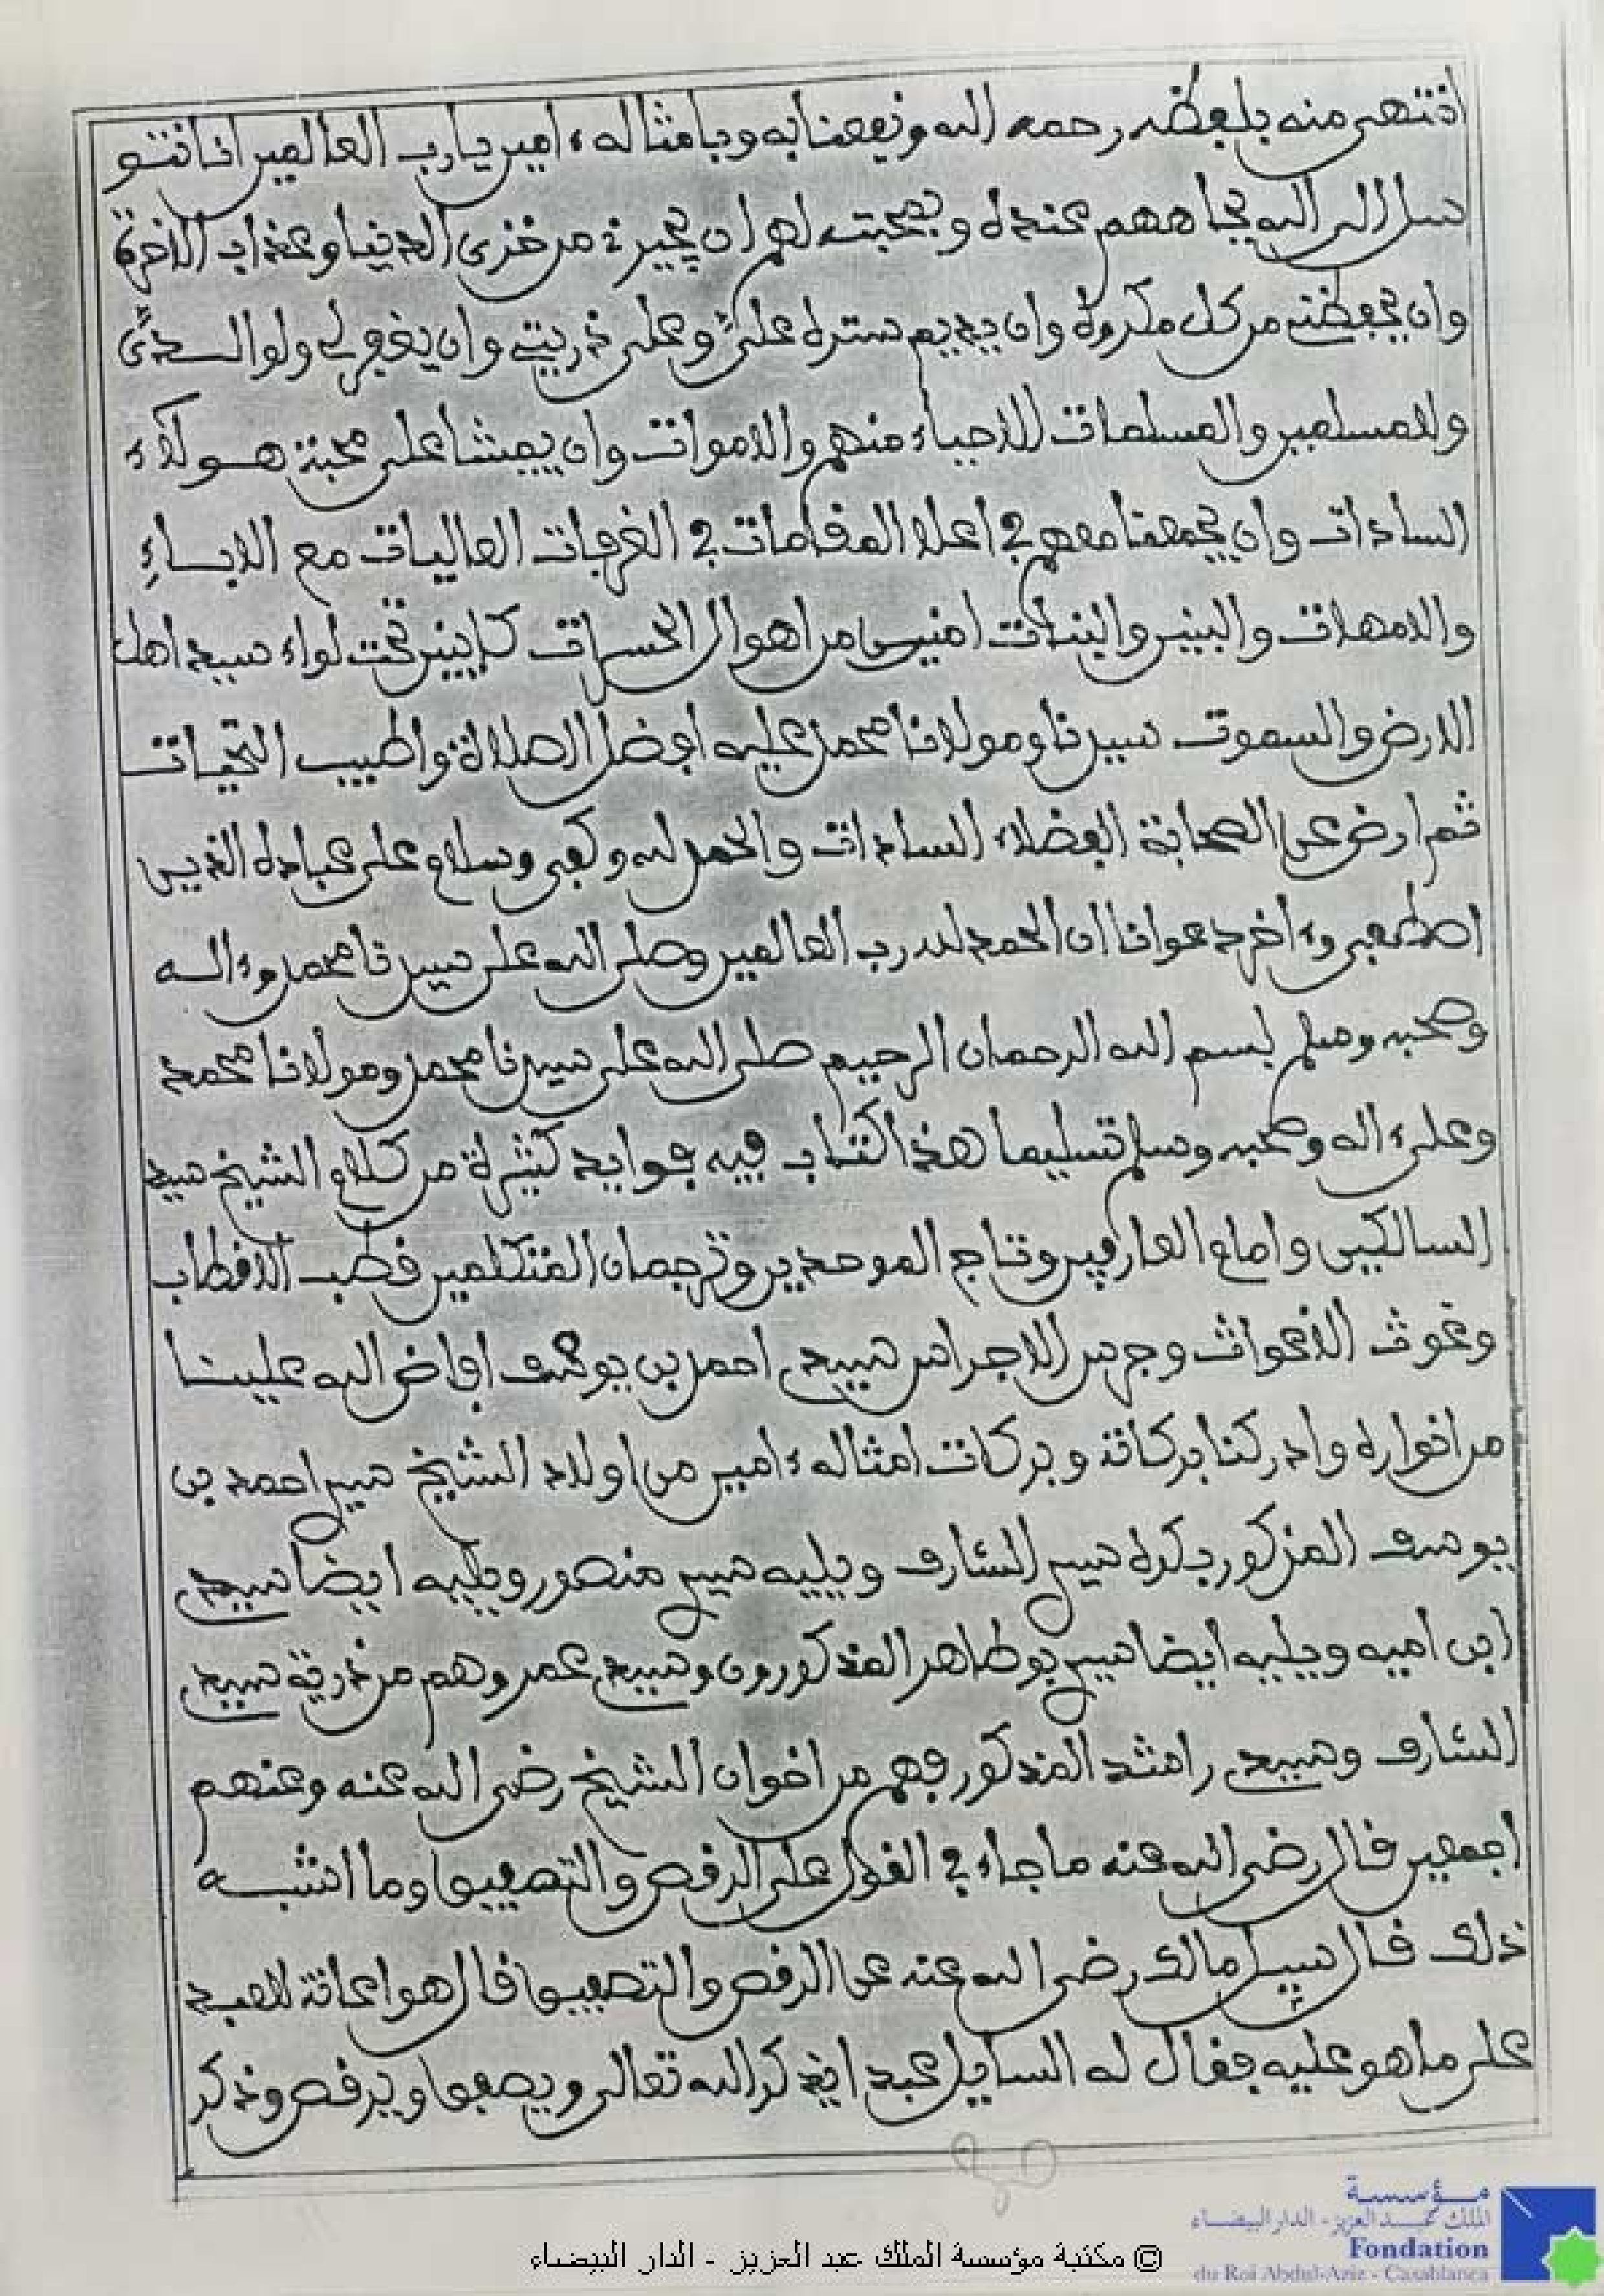 انتهى منه بلفظه رحمه الله ونفعنا به وبامثاله ءامين يا رب العالمين انا نتو
سل الى الله بجاههم عنده وبمحبته لهم ان يجيرنى من خزى الدنيا وعذاب الاخرة
وان يحفظنى من كل مكروه وان يديم ستره علي وعلى ذريتى وان يغفر لى ولوالدى
وللمسلمين والمسلمات الاحياء منهم والاموات وان يميتنا على محبة هولاء
السادات وان يجمعنا معهم في اعلا المقامات في الغرفات العاليات مع الاباء
والامهات والبنين والبنات امنين من اهوال الحسرات كاينين تحت لواء سيد اهل
الارض والسموت سيدنا ومولانا محمد عليه افضل الصلاة واطيب التحيات
ثم ارض عن الصحابة الفضلاء السادات والحمد لله وكفى وسلام على عباده الذين
اصطفى وءاخر دعوانا ان الحمد لله رب العالمين وصلى الله على سيدنا محمد وءاله
وصحبه وسلم بسم الله الرحمان الرحيم صلى الله على سيدنا محمد ومولانا محمد
وعلى ءاله وصحبه وسلم تسليما هذا الكتاب فيه فوايد كثيرة من كلام الشيخ سيد
السالكين وامام العارفين وتاج الموحدين وترجمان المتكلمين قطب الاقطاب
وغوث الاغواث وجرس الاجراس سيدي احمد بن يوسف افاض الله علينا
من انواره وادركنا بركاته وبركات امثاله ءامين من اولاد الشيخ سيدي احمد بن
يوسف المذكور بكره سيدي الشارف ويليه سيدي منصور ويليه ايضا سيدي
ابن اميه ويليه ايضا سيدي بوطاهر المذكورون وسيدي عمر وهم من ذرية سيدي
الشارف وسيدي راشد المذكور فهم من اخوان الشيخ رضى الله عنه وعنهم
اجمعين قال رضى الله عنه ما جاء في القول على الرقص والتصفيق وما اشبه
ذلك قال سيل مالك رضى الله عنه عن الرقص والتصفيق قال هو اعانة للعبد
على ما هو عليه فقال له السايل عبد اذ ذكر الله تعالى ويصفق ويرقص وذكر
© مكتبة مؤسسة الملك عبد العزيز - الدار البيضاء
مؤسسة
الملك عبد العزيز - الدار البيضاء
Fondation
du Roi Abdul-Aziz - Casablanca